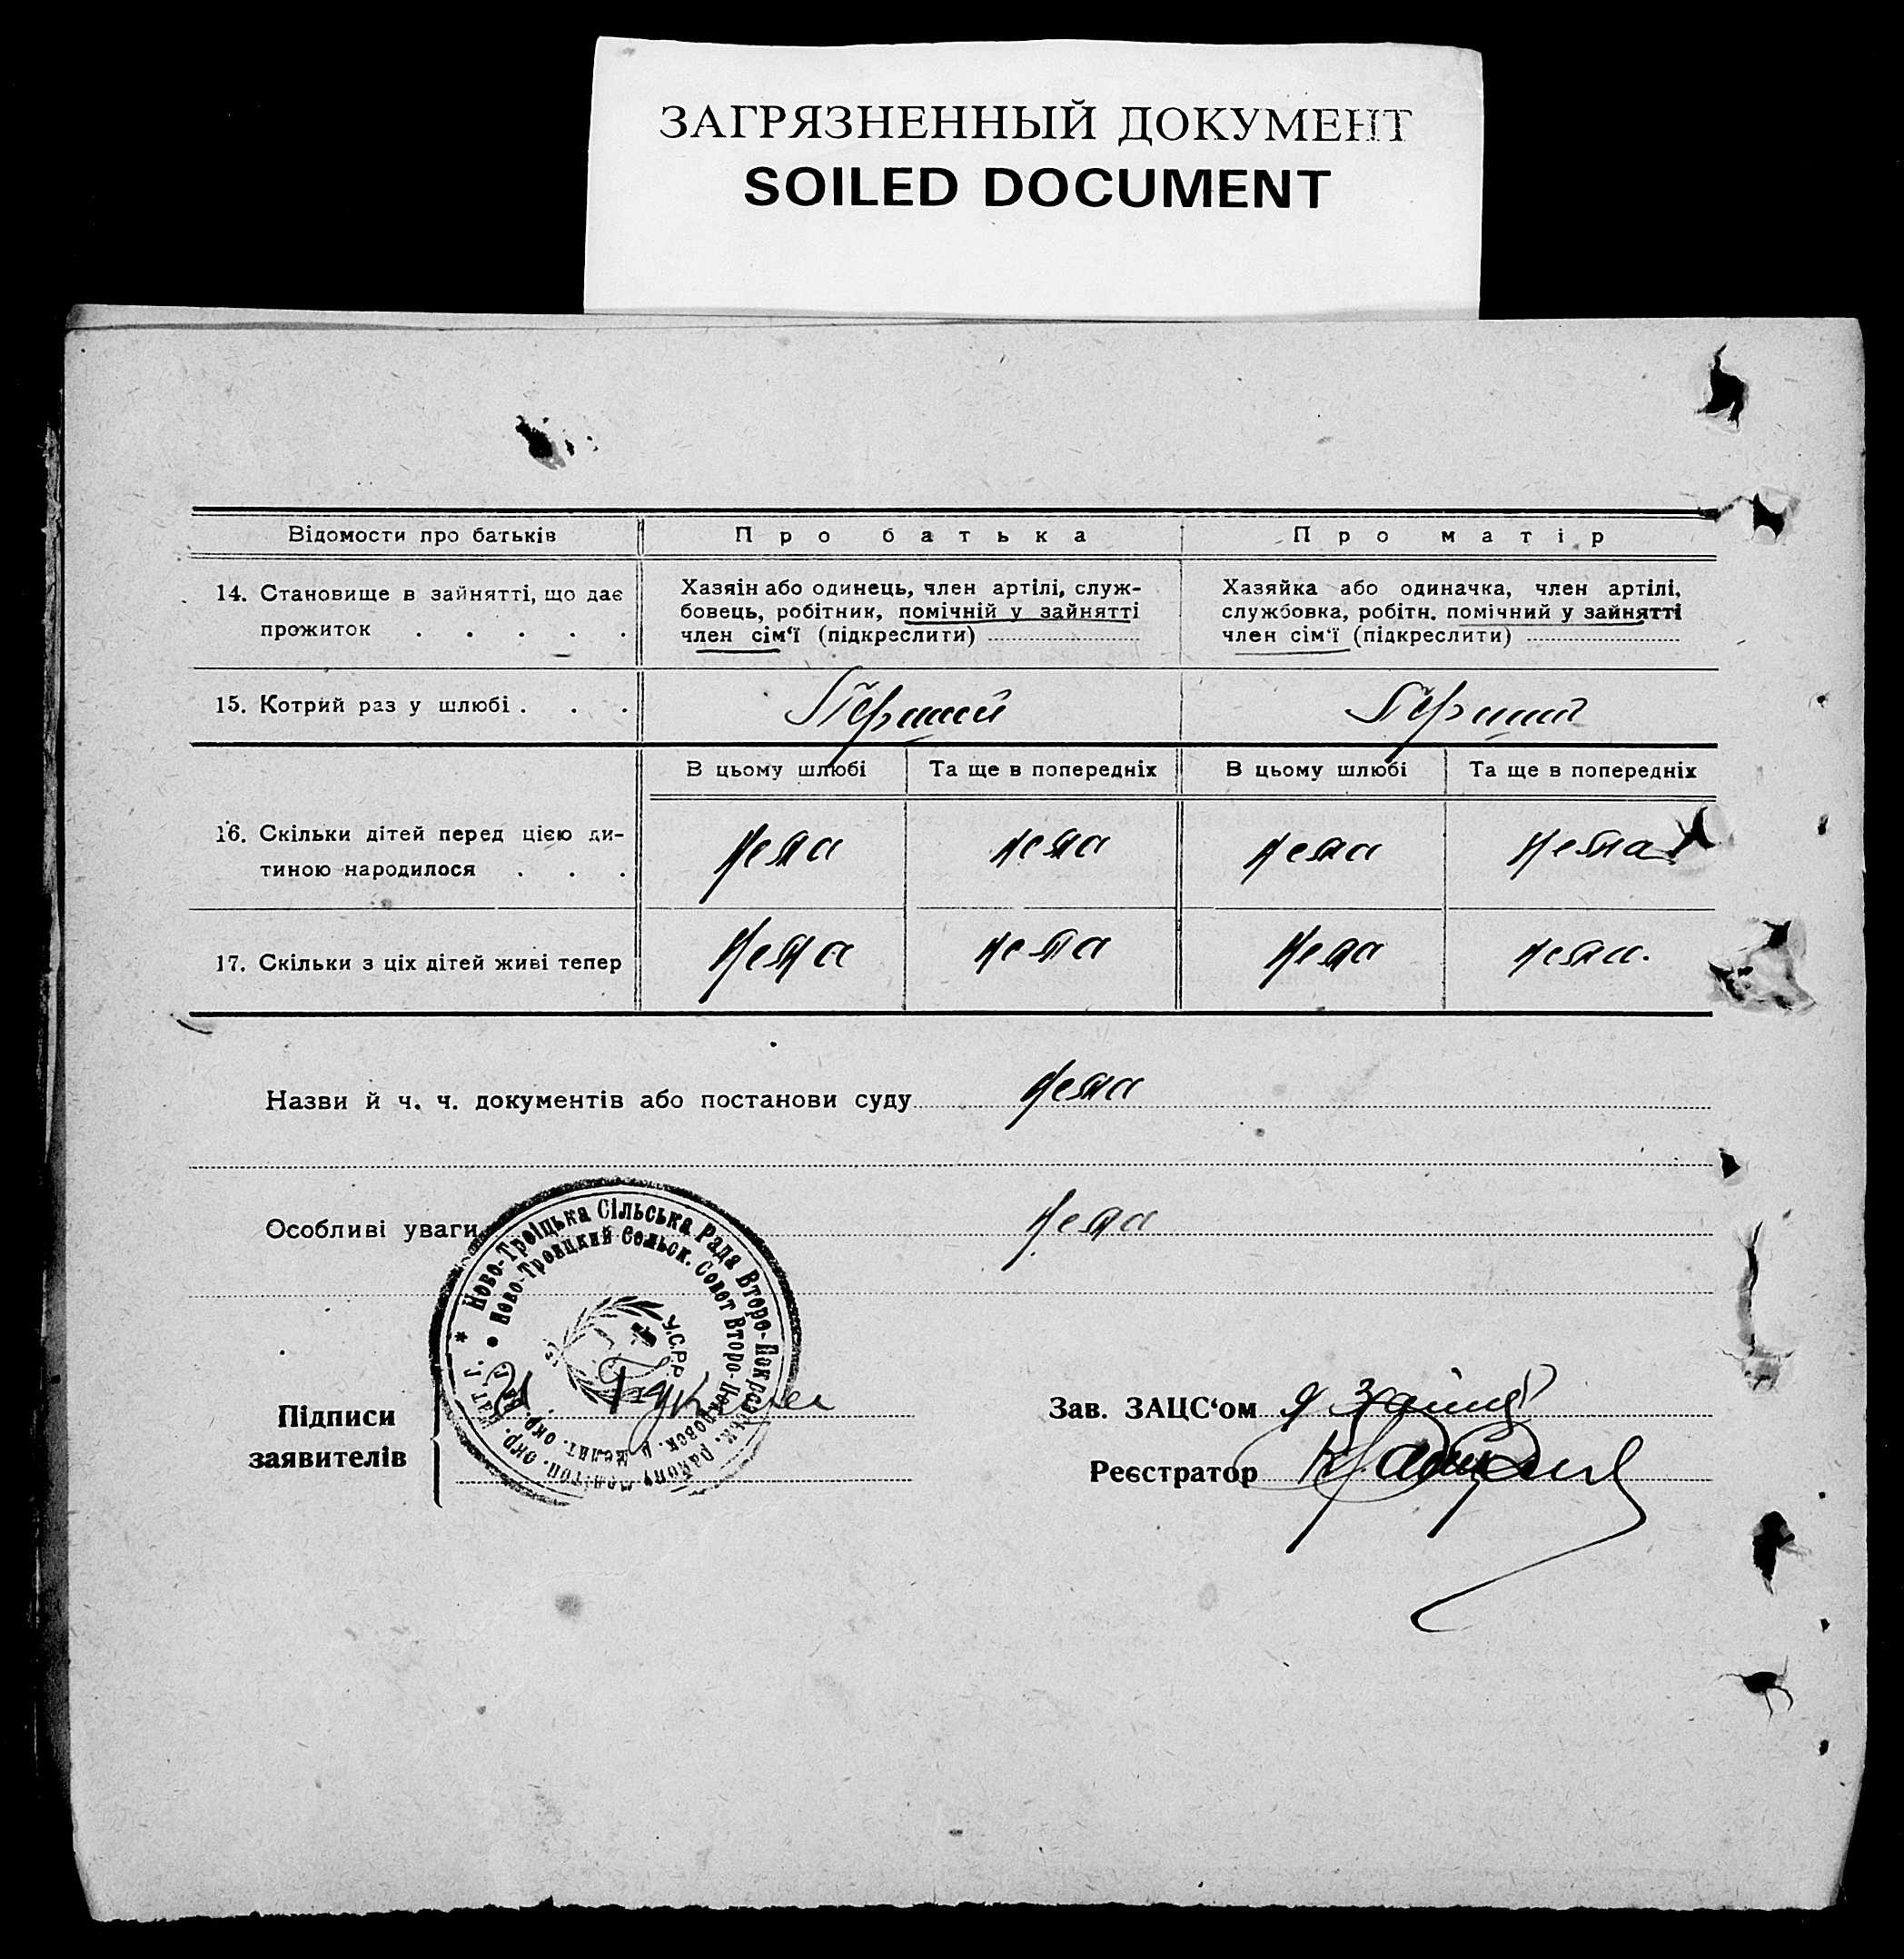 ЗАГРЯЗНЕННЫЙ ДОКУМЕНТ
SOILED DOCUMENT
Відомости про батьків Про батька Про матір
14. Становище в зайнятті, що дає прожиток . . . . .
Хазяін або одинець, член артілі, служ-
бовець, робітник, помічній у зайнятті
член сім‘ї (підкреслити)
Хазяйка або одиначка, член артілі,
службовка, робітн. помічний у зайнятті
член сім‘ї (підкреслити)
15. Котрий раз у шлюбі . . . Перший Перший
В цьому шлюбі Та ще в попередніх В цьому шлюбі Та ще в попередніх
16. Скільки дітей перед цією ди-
тиною народилося . . . нема нема нема нема
17. Скільки з ціх дітей живі тепер нема нема нема нема.
Назви й ч. ч. документів або постанови суду нема
Особливі уваги нема
* Ново-Троіцька Сільська Рада Второ-Покровськ. району
• Ново-Троицкий Сельск. Совет Второ-Покровск.
У.С.Р.Р.
Підписи
заявителів
Зав. ЗАЦС‘ом
Реєстратор